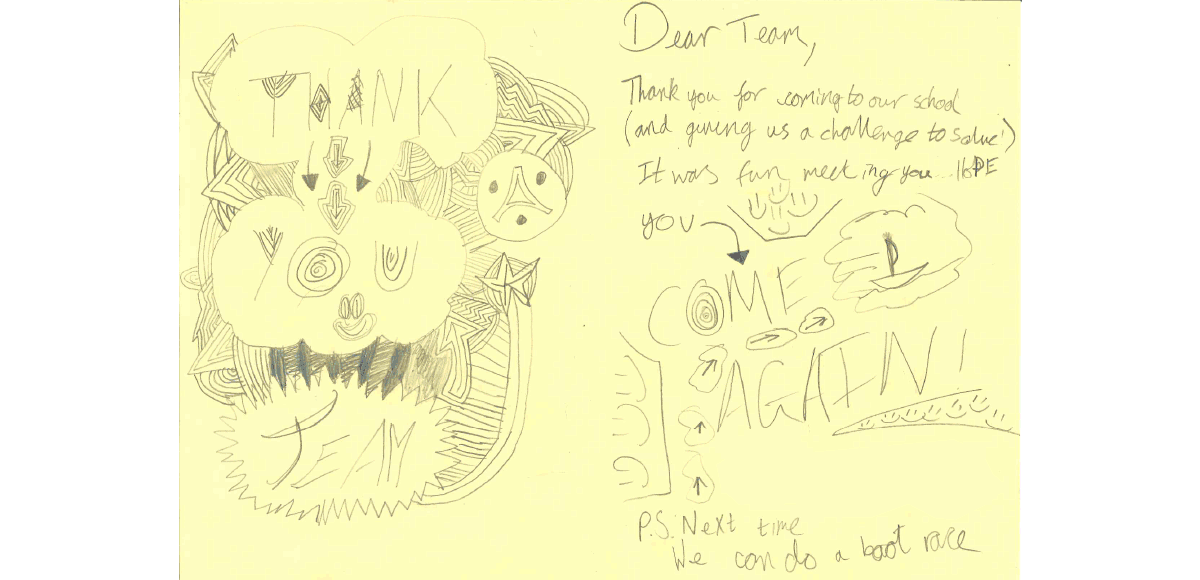 THANK
YOU
TEAM
Dear Team,
Thank you for coming to our school
(and giving us a challenge to solve!)
It was fun meeting you... HOPE
YOU
COME
AGAIN!
P.S. Next time
We can do a boat race